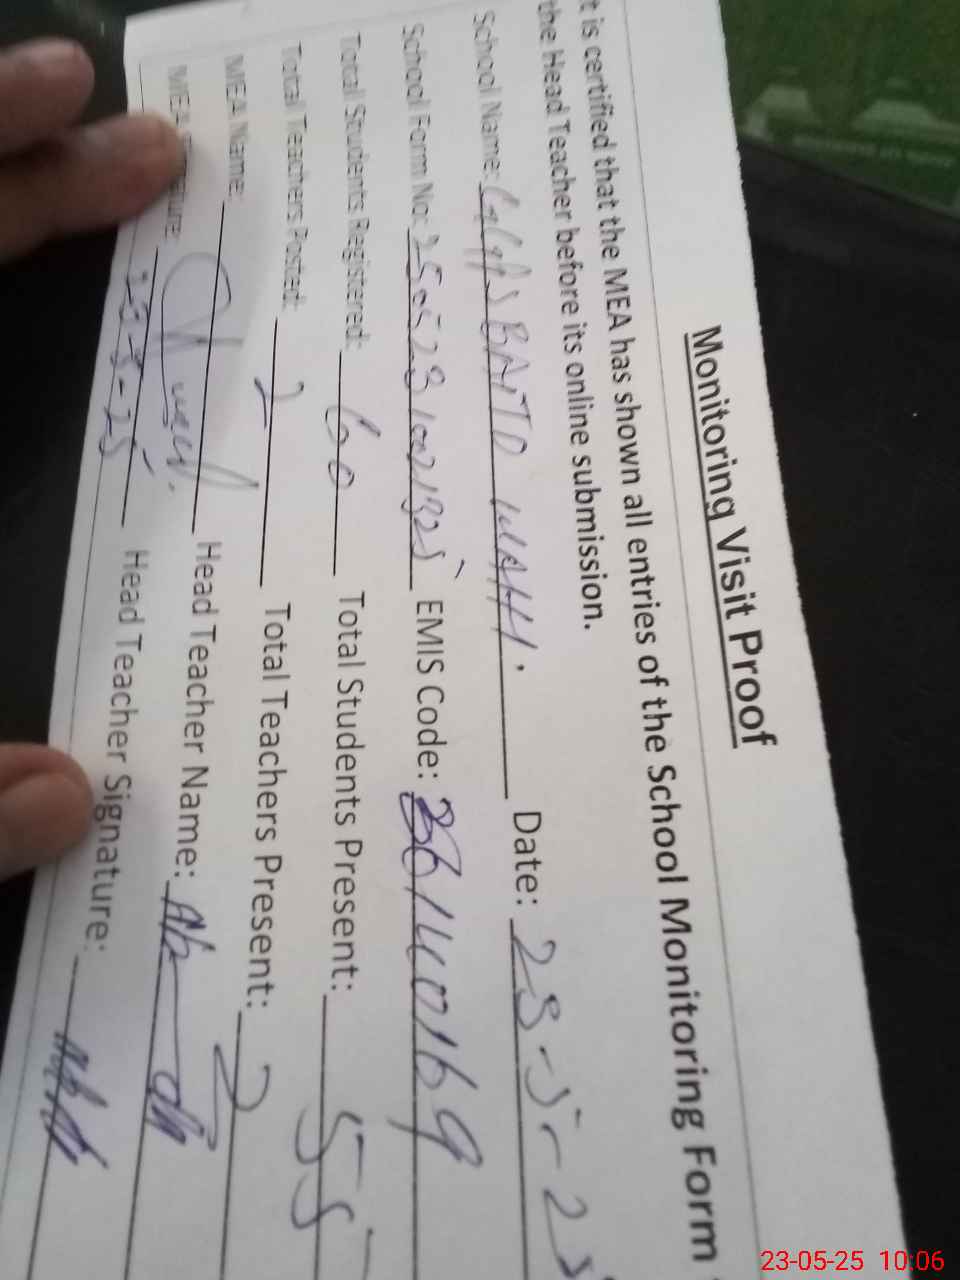 Monitoring Visit Proof
t is certified that the MEA has shown all entries of the School Monitoring Form
the Head Teacher before its online submission.
School Name: BAITD WAHI. Date: 23-5-25
School Form No: EMIS Code: 36140169
Total Students Registered: 60 Total Students Present: 55
Total Teachers Posted: 2 Total Teachers Present: 2
MEA Name: Head Teacher Name:
MEA Head Teacher Signature:
23-5-25
23-05-25 10:06